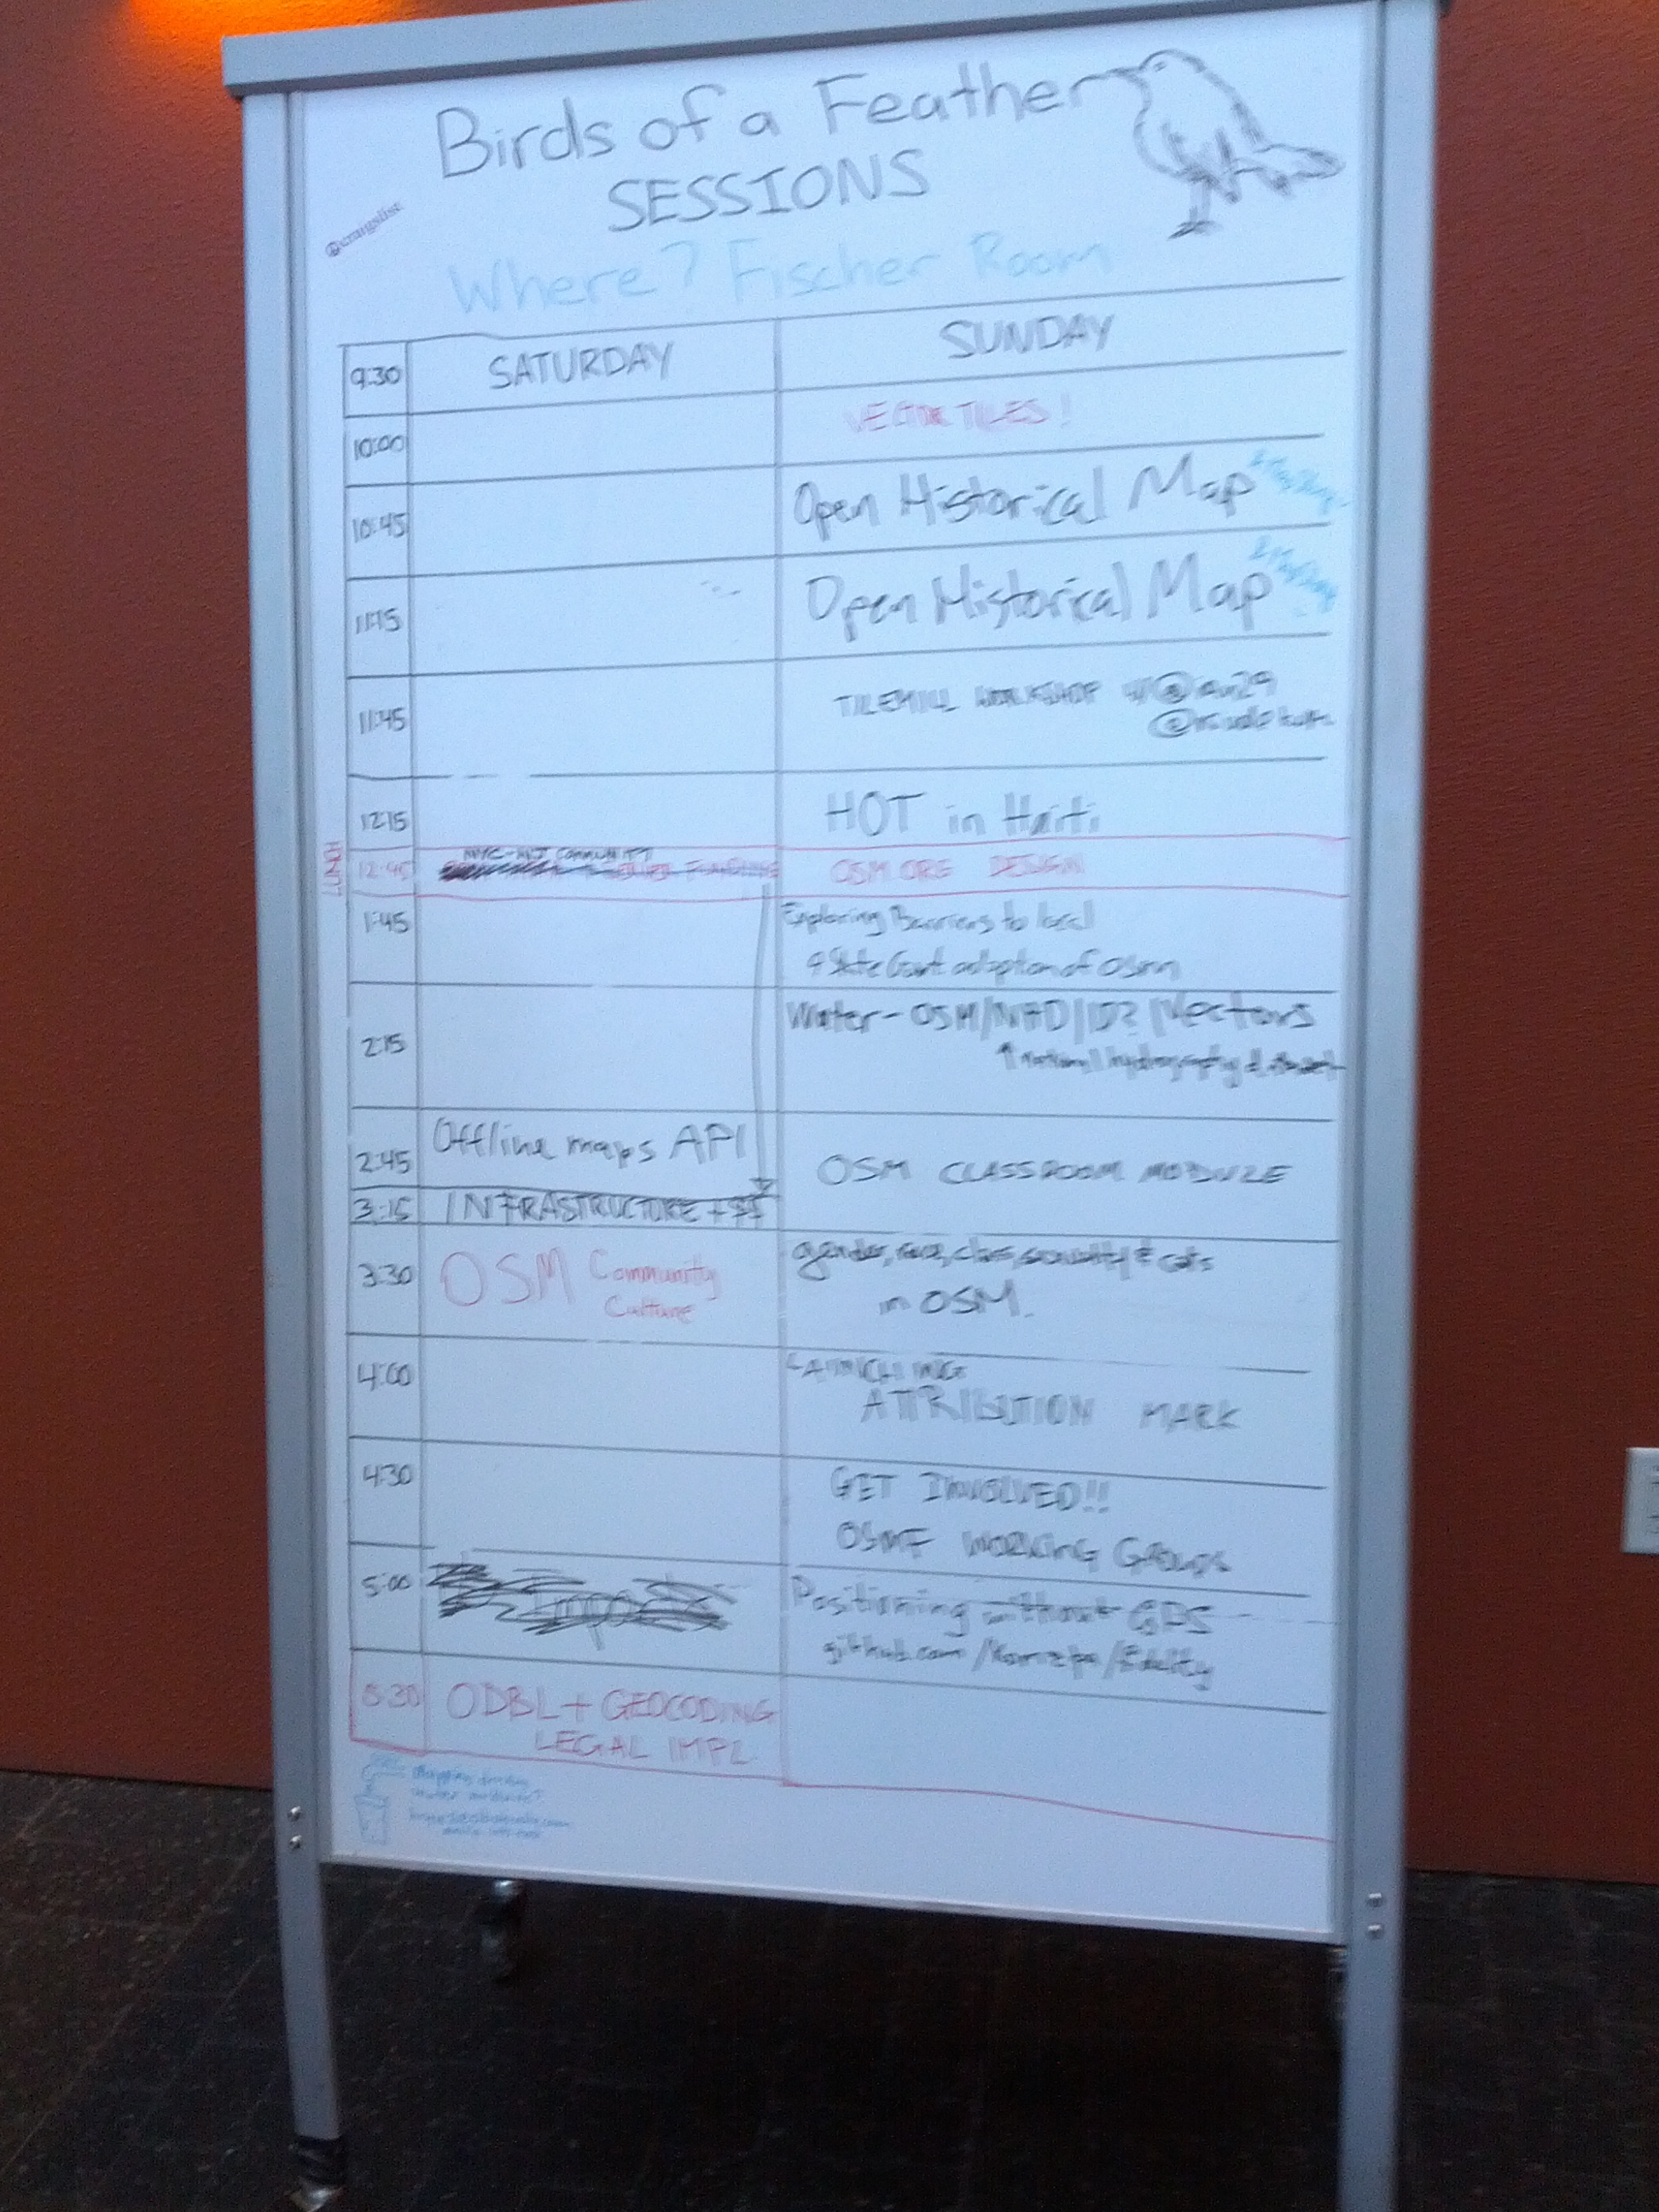 Birds of a Feather
SESSIONS
craigslist
Where? Fischer Room
9:30 SATURDAY SUNDAY
10:00 VECTOR TILES!
10:45 Open Historical Map
11:15 Open Historical Map
11:45 TILEMILL WORKSHOP W/ @
@
12:15 HOT in Haiti
LUNCH
NYC-NJ COMMUNITY
12:45 FUNDING OSM.ORG DESIGN
1:45 Exploring Barriers to local
& State Govt adoption of OSM
2:15 Water - OSM/NHD/ID?/Vectors
↑ national hydrography dataset
2:45 Offline maps API OSM CLASSROOM MODULE
3:15 INFRASTRUCTURE + $$
3:30 OSM Community gender, race, class, sexuality & cats
Culture in OSM.
4:00 LAUNCHING
ATTRIBUTION MARK
4:30 GET INVOLVED!!
OSMF WORKING GROUPS
5:00 Imports Positioning without GPS
github.com/
5:30 ODBL + GEOCODING
LEGAL IMPL.
Mapping drinking
water